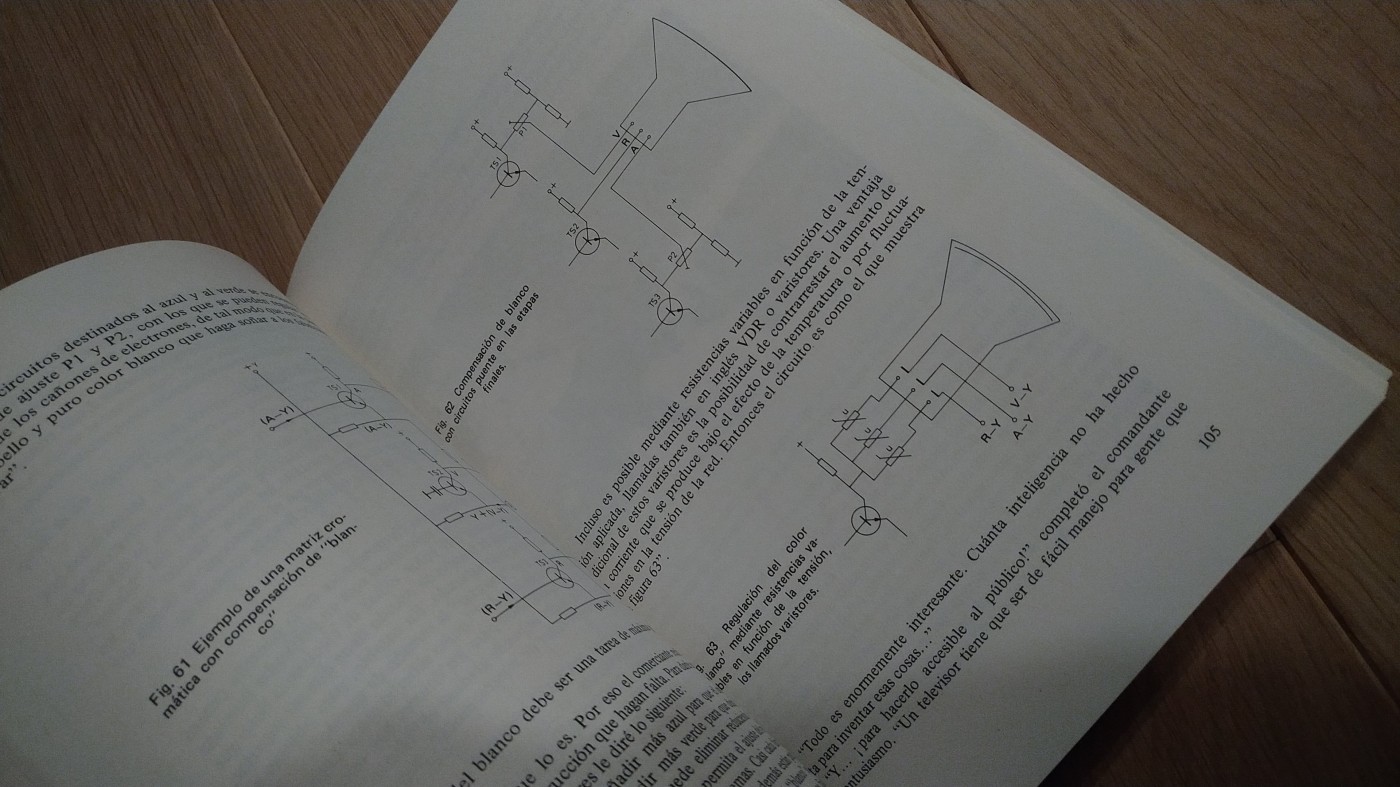 circuitos destinados al azul y al verde se
de ajuste P1 y P2, con los que se pueden
los cañones de electrones, de tal modo que
bello y puro color blanco que haga soñar a los
ar”.
+
(A—Y)
(A—Y)
TS2
Y+(V—Y)
(R—Y)
Fig. 61 Ejemplo de una matriz cro-
mática con compensación de “blan-
co”
el blanco debe ser una tarea de
que lo es. Por eso el comerciante
ucción que hagan falta. Para
es le diré lo siguiente:
ñadir más azul para
dir más verde para
uede eliminar
permita el ajuste
+
+
P1
TS1
V
R
A
+
TS2
+
P2
+
TS3
Fig. 62 Compensación de blanco
con circuitos puente en las etapas
finales.
Incluso es posible mediante resistencias variables en función de la ten-
ión aplicada, llamadas también en inglés VDR o varistores. Una ventaja
dicional de estos varistores es la posibilidad de contrarrestar el aumento de
corriente que se produce bajo el efecto de la temperatura o por fluctua-
iones en la tensión de la red. Entonces el circuito es como el que muestra
figura 63”.
+
U
U
U
R—Y
A—Y
V—Y
g. 63 Regulación del color
lanco” mediante resistencias va-
bles en función de la tensión,
los llamados varistores.
“Todo es enormemente interesante. Cuánta inteligencia no ha hecho
ta para inventar esas cosas...”
“Y... ¡para hacerlo accesible al público!” completó el comandante
ntusiasmo. “Un televisor tiene que ser de fácil manejo para gente que
105